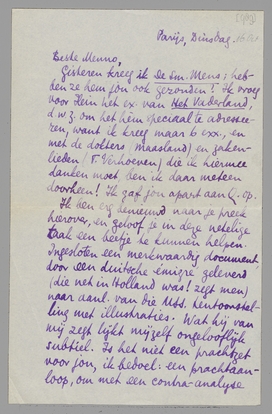 Parijs, Dinsdag
Beste Menno,
Gisteren kreeg ik De Sm. Mens; heb-
ben ze hem jou ook gezonden? Ik vroeg
voor Hein het ex. van Het Vaderland,
d.w.z. om het hem speciaal te adressee-
ren, want ik kreeg maar 6 exx., en
met de dokters (Maasland) en zaken-
lieden (F. Verhoeven) die ik hiermee
danken moet, ben ik daar meteen
doorheen! Ik gaf jou apart aan Q. op.
Ik ben erg benieuwd naar je preek
hierover, en geloof je in deze netelige
taak een beetje te kunnen helpen.
Ingesloten een merkwaardig document,
door een duitsche émigré geleverd
(die net in Holland was! zegt men)
naar aanl. van die Mss. tentoonstel-
ling met illustraties. Wat hij van
mij zegt lijkt mijzelf ongelooflijk
subtiel. Is het niet een prachtzet
voor jou, ik bedoel: een prachtaan-
loop, om met een contra-analyse